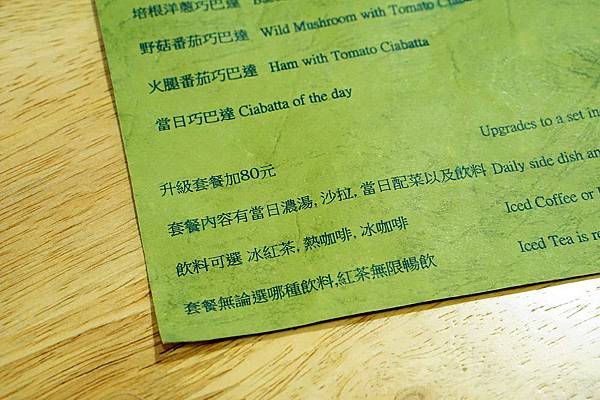 培根洋蔥巧巴達
野菇番茄巧巴達 Wild Mushroom with Tomato
火腿番茄巧巴達 Ham with Tomato Ciabatta
當日巧巴達 Ciabatta of the day
升級套餐加80元 Upgrades to a set in
套餐內容有當日濃湯, 沙拉, 當日配菜以及飲料 Daily side dish an
飲料可選 冰紅茶, 熱咖啡, 冰咖啡 Iced Coffee or
套餐無論選哪種飲料,紅茶無限暢飲 Iced Tea is re